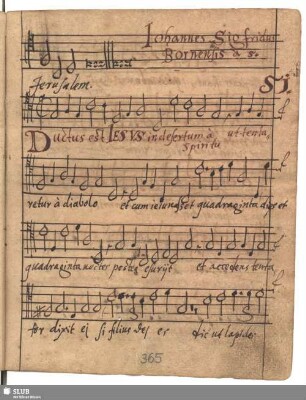 Iohannes Sigfridus
Bornensis à 5.
Jerusalem.
Ductus est IESUS in desertum à ut tenta,
Spiritu
retur à diabolo et cum ieiunasset quadraginta dies et
quadraginta noctes postea esurijt et accedens tenta
tor dixit ei si filius dei es dic ut lapides
365
SLUB